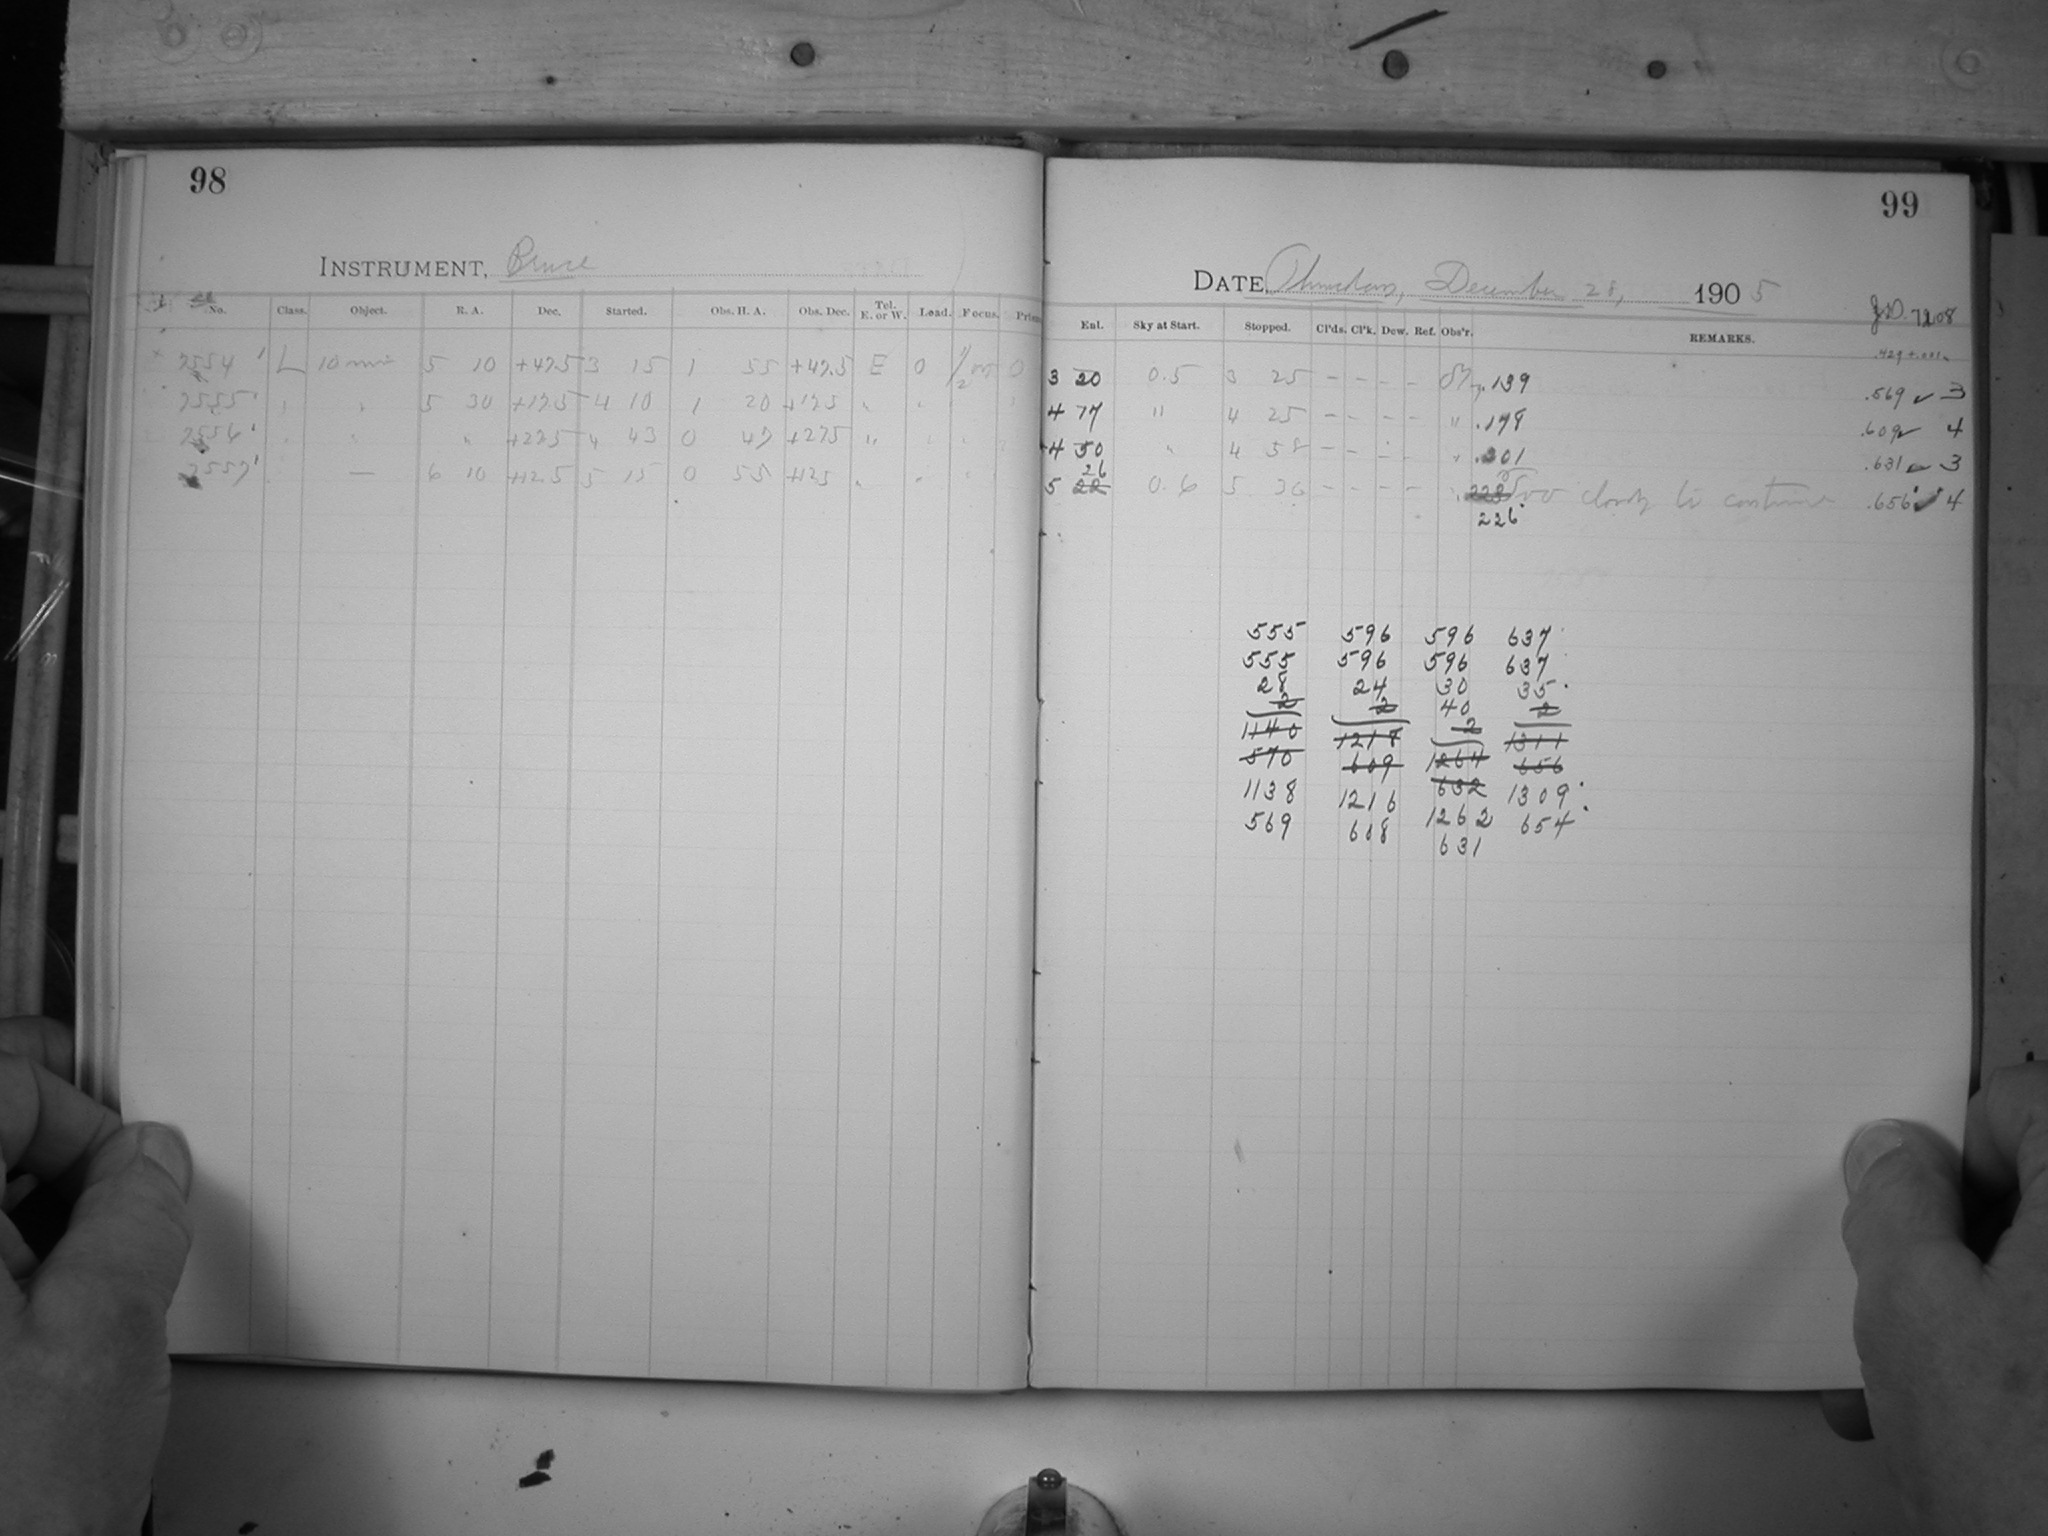 98
INSTRUMENT, Bruce
No. Class. Object. R. A. Dec. Started. Obs. H. A. Obs. Dec. Tel. E. or W. Load. Focus. Prism
7554 L 10 min 5 10 +47.5 3 15 1 55 +47.5 E 0 0
7555 5 30 +17.5 4 10 1 20 +17.5 "
7556 " +27.5 4 43 0 47 +27.5 "
7557 — 6 10 +12.5 5 15 0 55 +12.5 "
99
DATE, Thursday, December 28, 1905
J.D. 7208
Ent. Sky at Start. Stopped. Cl'ds. Cl'k. Dew. Ref. Obs'r. REMARKS.
3 20 0.5 3 25 – – – – .139 .569 ✓ 3
4 17 " 4 25 – – – – " .178 .609 ✓ 4
4 50 " 4 58 – – – – " .201 .631 ✓ 3
26
5 22 0.6 5 36 – – – – " 223 Too cloudy to continue .656 ✓ 4
226
555 596 596 637
555 596 596 637
28 24 30 35
2 2 40 2
1140 1218 2 1311
570 609 1264 656
1138 1216 632 1309
569 608 1262 654
631